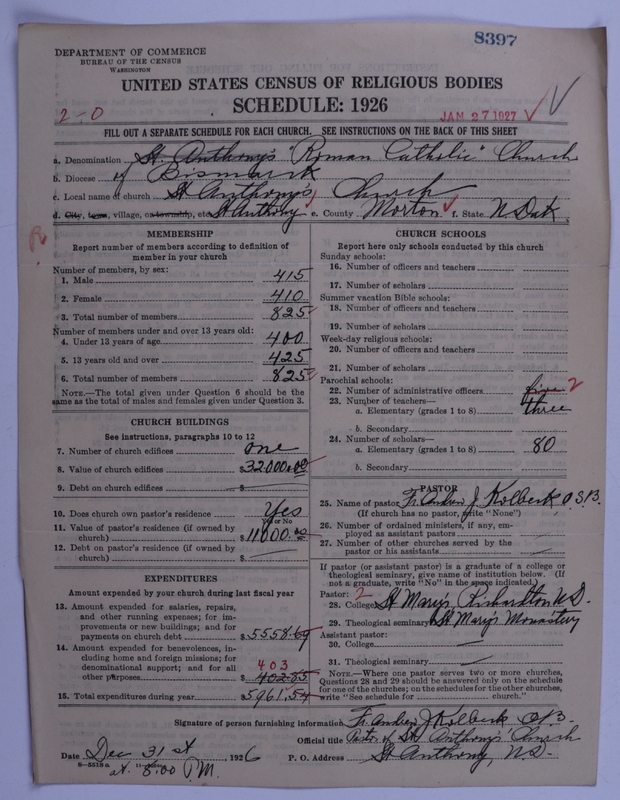 8397
DEPARTMENT OF COMMERCE
BUREAU OF THE CENSUS
WASHINGTON
UNITED STATES CENSUS OF RELIGIOUS BODIES
SCHEDULE: 1926
2-0
JAN 27 1927
FILL OUT A SEPARATE SCHEDULE FOR EACH CHURCH. SEE INSTRUCTIONS ON THE BACK OF THIS SHEET
a. Denomination St. Anthony's "Roman Catholic" Church
b. Diocese of Bismarck
c. Local name of church St Anthony's Church
d. City, town, village, or township, etc. St Anthony e. County Morton f. State N. Dak.
MEMBERSHIP
Report number of members according to definition of
member in your church
Number of members, by sex:
1. Male 415
2. Female 410
3. Total number of members 825
Number of members under and over 13 years old:
4. Under 13 years of age 400
5. 13 years old and over 425
6. Total number of members 825
NOTE.—The total given under Question 6 should be
same as the total of males and females given under Question 3.
CHURCH BUILDINGS
See instructions, paragraphs 10 to 12
7. Number of church edifices one
8. Value of church edifices $32000.00
9. Debt on church edifices $
10. Does church own pastor's residence Yes
Yes or No
11. Value of pastor's residence (if owned by
church) $11000.00
12. Debt on pastor's residence (if owned by
church) $
EXPENDITURES
Amount expended by your church during last fiscal year
13. Amount expended for salaries, repairs,
and other running expenses; for im-
provements or new buildings; and for
payments on church debt $5558.69
14. Amount expended for benevolences, in-
cluding home and foreign missions; for
denominational support; and for all
403
other purposes 402.85
15. Total expenditures during year $5961.54
CHURCH SCHOOLS
Report here only schools conducted by this church
Sunday schools:
16. Number of officers and teachers
17. Number of scholars
Summer vacation Bible schools:
18. Number of officers and teachers
19. Number of scholars
Week-day religious schools:
20. Number of officers and teachers
21. Number of scholars
Parochial schools:
22. Number of administrative officers five 2
23. Number of teachers—
a. Elementary (grades 1 to 8) three
b. Secondary
24. Number of scholars—
a. Elementary (grades 1 to 8) 80
b. Secondary
PASTOR
25. Name of pastor Fr. J. Kolbeck O.S.B.
(If church has no pastor, write "None")
26. Number of ordained ministers, if any, em-
ployed as assistant pastors
27. Number of other churches served by the
pastor or his assistants
If pastor (or assistant pastor) is a graduate of a college or
theological seminary, give name of institution below. (If
not a graduate, write "No" in the space indicated.)
Pastor: 2
28. College St Mary's Richardton N.D.
29. Theological seminary St Mary's Monastery
Assistant pastor:
30. College
31. Theological seminary
NOTE.—Where one pastor serves two or more churches,
Questions 28 and 29 should be answered only on the schedule
for one of the churches; on the schedules for the other churches,
write "See schedule for church."
Signature of person furnishing information Fr. J Kolbeck
Official title Pastor of St Anthony's Church
Date Dec 31st, 1926 P. O. Address St Anthony, N.D.
at 8:00 P.M.